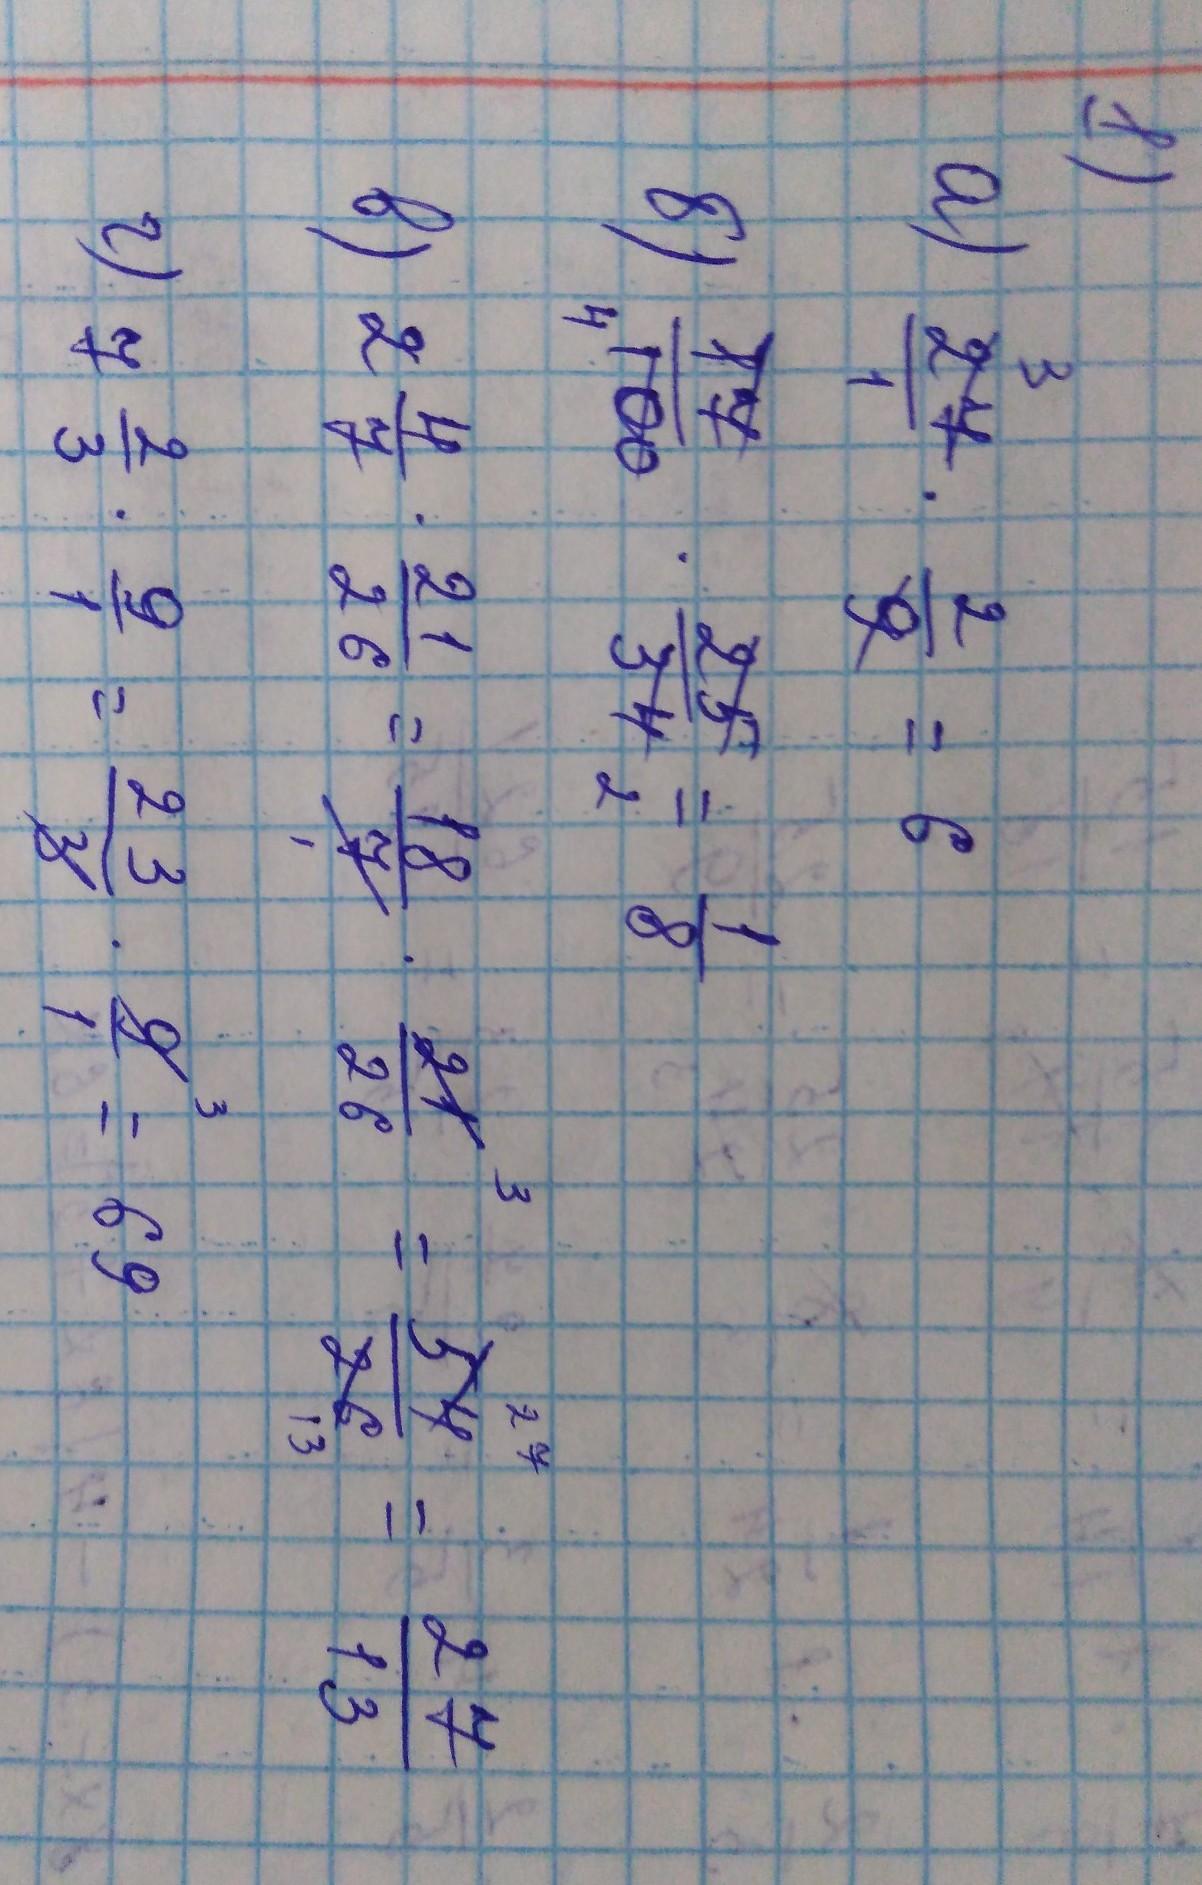 1)
а) 27/1 3 · 2/9 = 6
б) 17/100 4 · 25/34 2 = 1/8
в) 2 4/7 · 21/26 = 18/7 1 · 21/26 3 = 54/26 27 13 = 27/13
г) 7 2/3 · 9/1 = 23/3 · 9/1 3 = 69